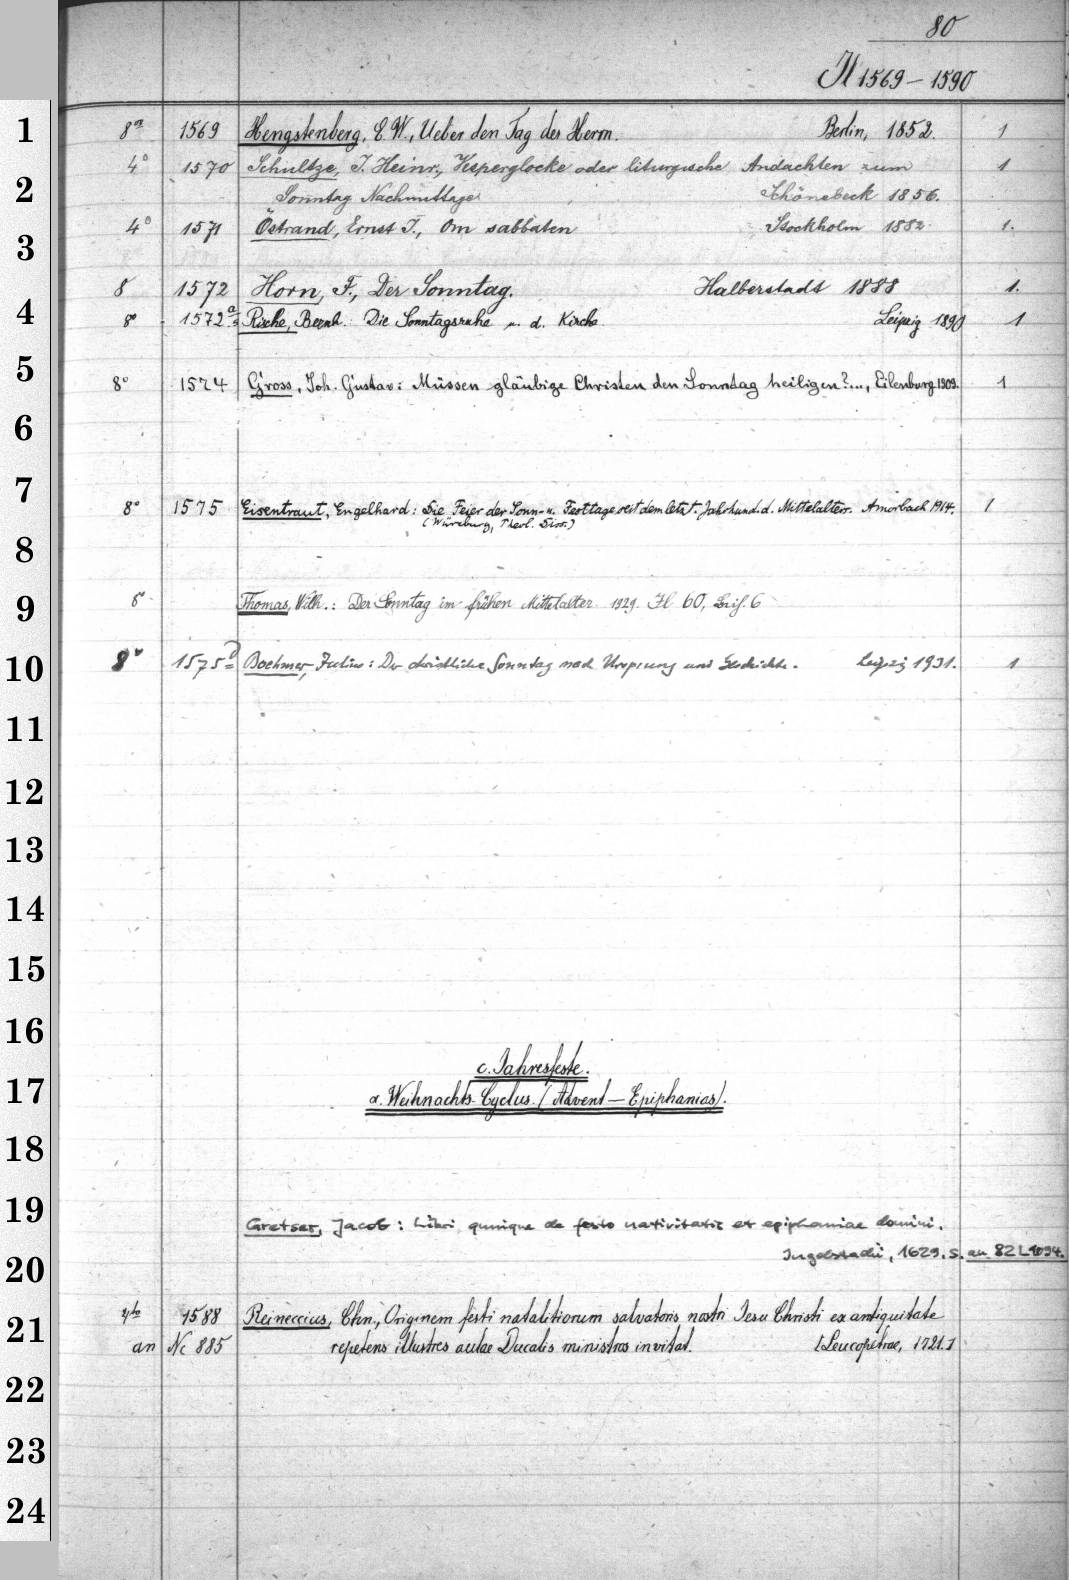 80
Il 1569 – 1590
1 8° 1569 Hengstenberg, E. W., Ueber den Tag des Herrn. Berlin, 1852. 1
4° 1570 Schultze, J. Heinr., Vesperglocke oder liturgische Andachten zum 1
2 Sonntag Nachmittage Schönebeck 1856.
3 4° 1571 Östrand, Ernst T., Om sabbaten Stockholm 1882. 1.
8 1572 Horn, F., Der Sonntag. Halberstadt 1888 1.
4 8° 1572a Rische, Bernh. Die Sonntagsruhe u. d. Kirche Leipzig 1890 1
5 8° 1574 Gross, Joh. Gustav: Müssen gläubige Christen den Sonntag heiligen?..., Eilenburg 1909. 1
6
7 8° 1575 Eisentraut, Engelhard: Die Feier der Sonn- u. Festtage seit dem letzt. Jahrhund. d. Mittelalters. Amorbach 1914. 1
(Würzburg, Theol. Diss.)
8
9 8° Thomas, Wilh.: Der Sonntag im frühen Mittelalter 1929. Il 60, 6
10 8° 1575b Boehmer, Julius: Der christliche Sonntag nach Ursprung und Geschichte. Leipzig 1931. 1
11
12
13
14
15
16
c. Jahresfeste.
17 α. Weihnachts-Cyclus. (Advent – Epiphanias).
18
19 Gretser, Jacob: Libri quinque de festo nativitatis et epiphaniae domini.
20 Ingolstadii, 1629. s. an 82 L 1094.
4to 1588 Reineccius, Chn., Originem festi natalitiorum salvatoris nostri Jesu Christi ex antiquitate
21 an Nc 885 repetens illustres aulae Ducalis ministros invitat. [Leucopetrae, 1721.]
22
23
24